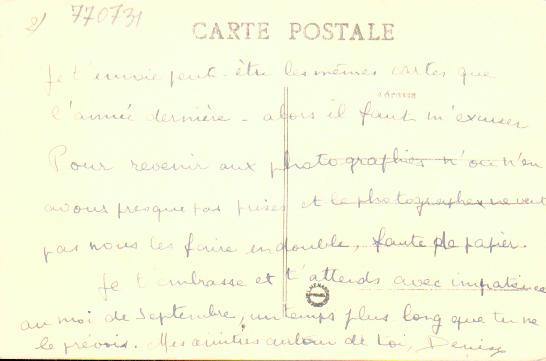 2/ 770731
CARTE POSTALE
Je t'envoie peut-être les mêmes cartes que
ADRESSE
l'année dernière - alors il faut m'excuser
Pour revenir aux photographies n'ou n'en
avons presque pas prises et le photographe ne veut
pas nous les faire en double, faute de papier.
Je t'embrasse et t'attends avec impatience
au moi de Septembre, un temps plus long que tu ne
le prévois. Mes amitiés autour de toi, Denise